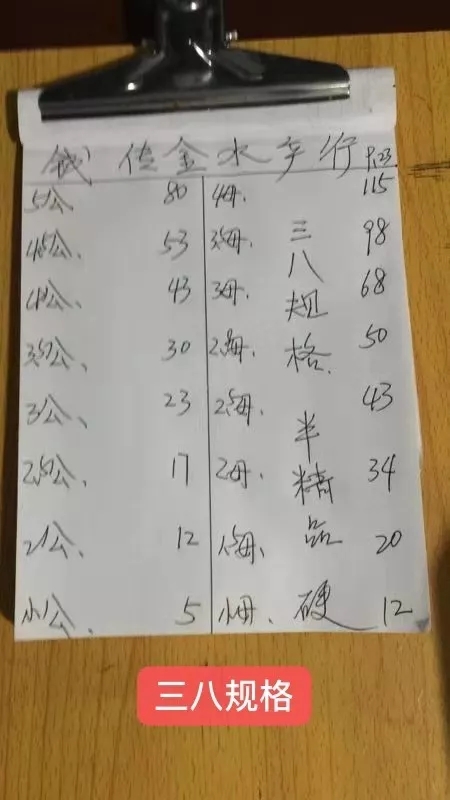 钱传金水产行
5公 80
4.5公、 53
4公、 43
3.5公、 30
3公、 23
2.5公、 17
2公、 12
小公、 5
4母、 115
3.5母、 98
3母、 68
2.8母、 50
2.5母、 43
2母、 34
1.5母、 20
小母、 12
三八规格、半精品硬
三八规格